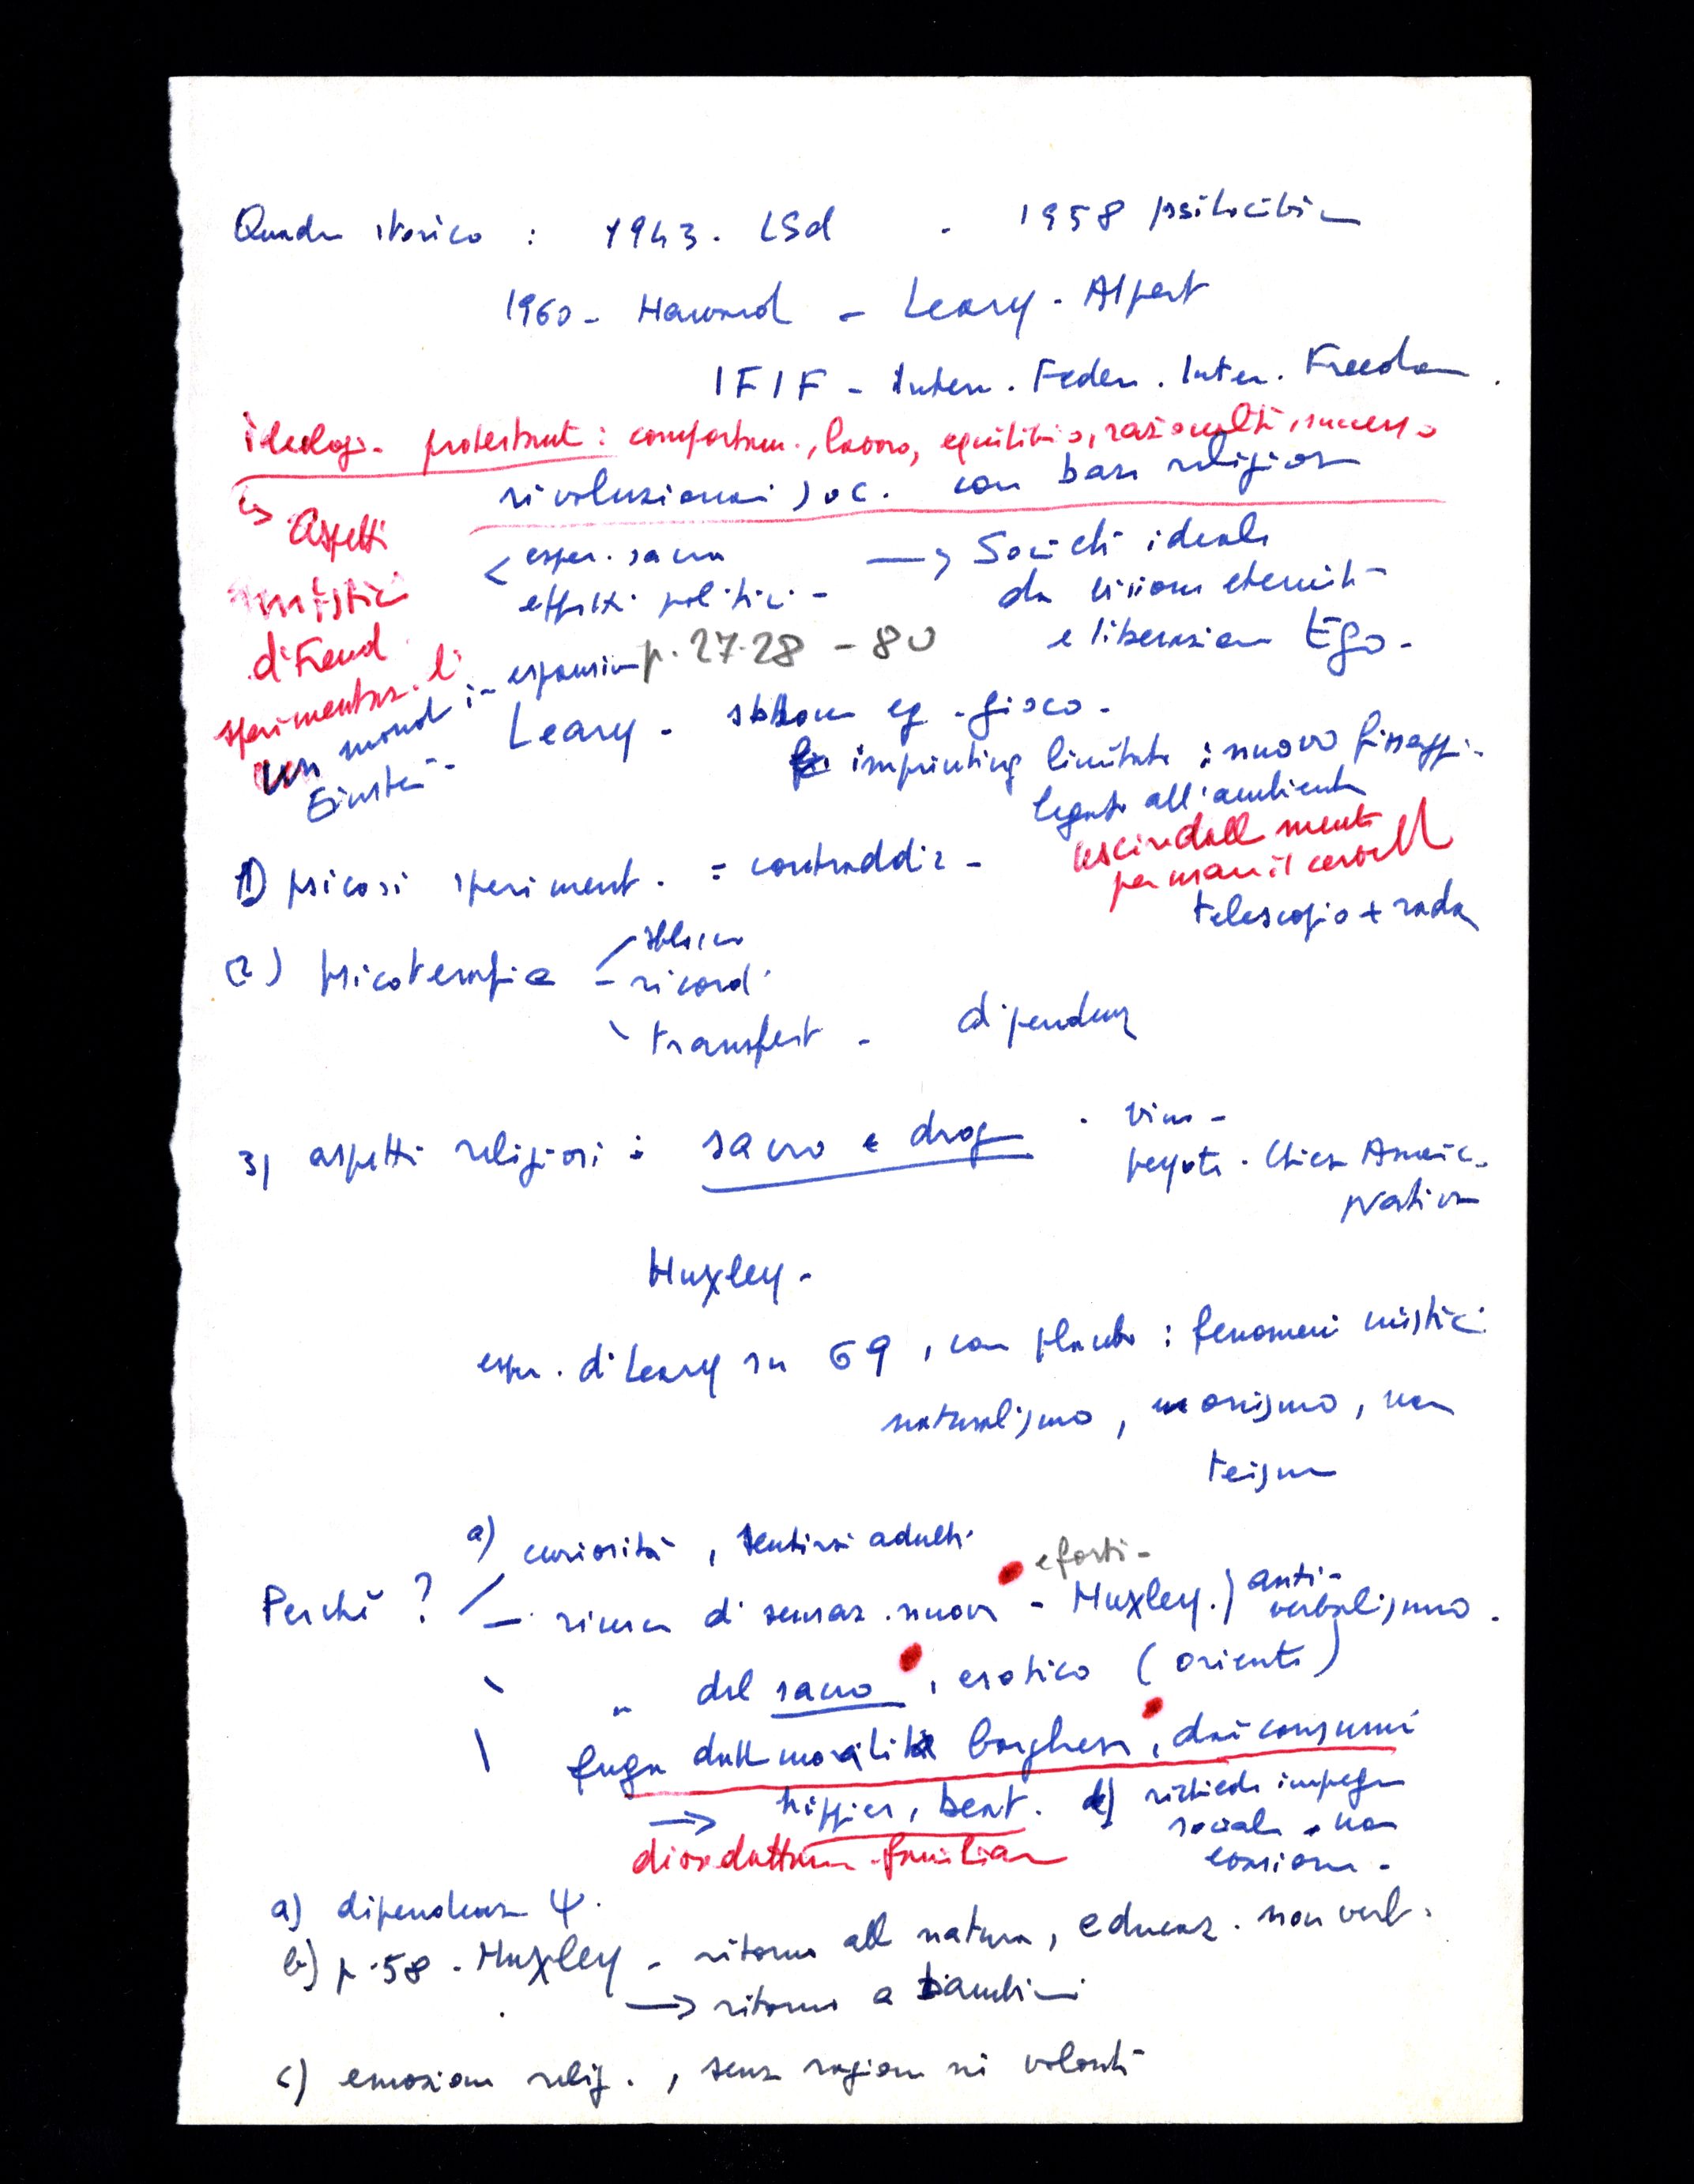 Quadro storico : 1943. LSd . 1958 psilocibin
1960 - Harvard - Leary - Alpert
IFIF - Intern. Feder. Inter. Freedom.
ideolog. protestant : comportam., lavoro, equilibrio, razionalità, successo
rivoluzionari soc. con base religiosa
↳ Aspetti
mistici
di Freud
sperimentaz. l
un mond
Einstein -
< esper. sacra → Società ideale
effetti politici - da visione eternità
e liberazione Ego -
espansion p. 27-28 - 80
Leary - eg - gioco -
imprinting limitato : nuovo fissaggi-
legato all'ambiente
uscire dall mente
per usare il cervell
telescopio + radar
1) psicosi speriment. = contraddiz -
2) psicoterapia / sblocco
- ricordi
\ transfert - dipendenz
3) aspetti religiosi : sacro e droga . vino -
peyote - Chiesa Americ.
nativa
Huxley -
esper. di Leary su 69, con placebo : fenomeni mistici
naturalismo, monismo, non
teismo
a) curiosità, sentirsi adulti
e forti -
Perché ? / - ricerca di sensaz. nuova - Huxley.) anti-
verbalismo.
\ " del sacro, erotico (oriente)
\ fuga dall moralità borghese, dai consumi
→ hippies, beat. d) richiede impegno
sociale, non
evasione -
disadattam. familiar
a) dipendenza ψ.
b) p. 58 - Huxley - ritorno all natura, educaz. non verb.
→ ritorno a bambini
c) emozione relig., senza ragione né volontà